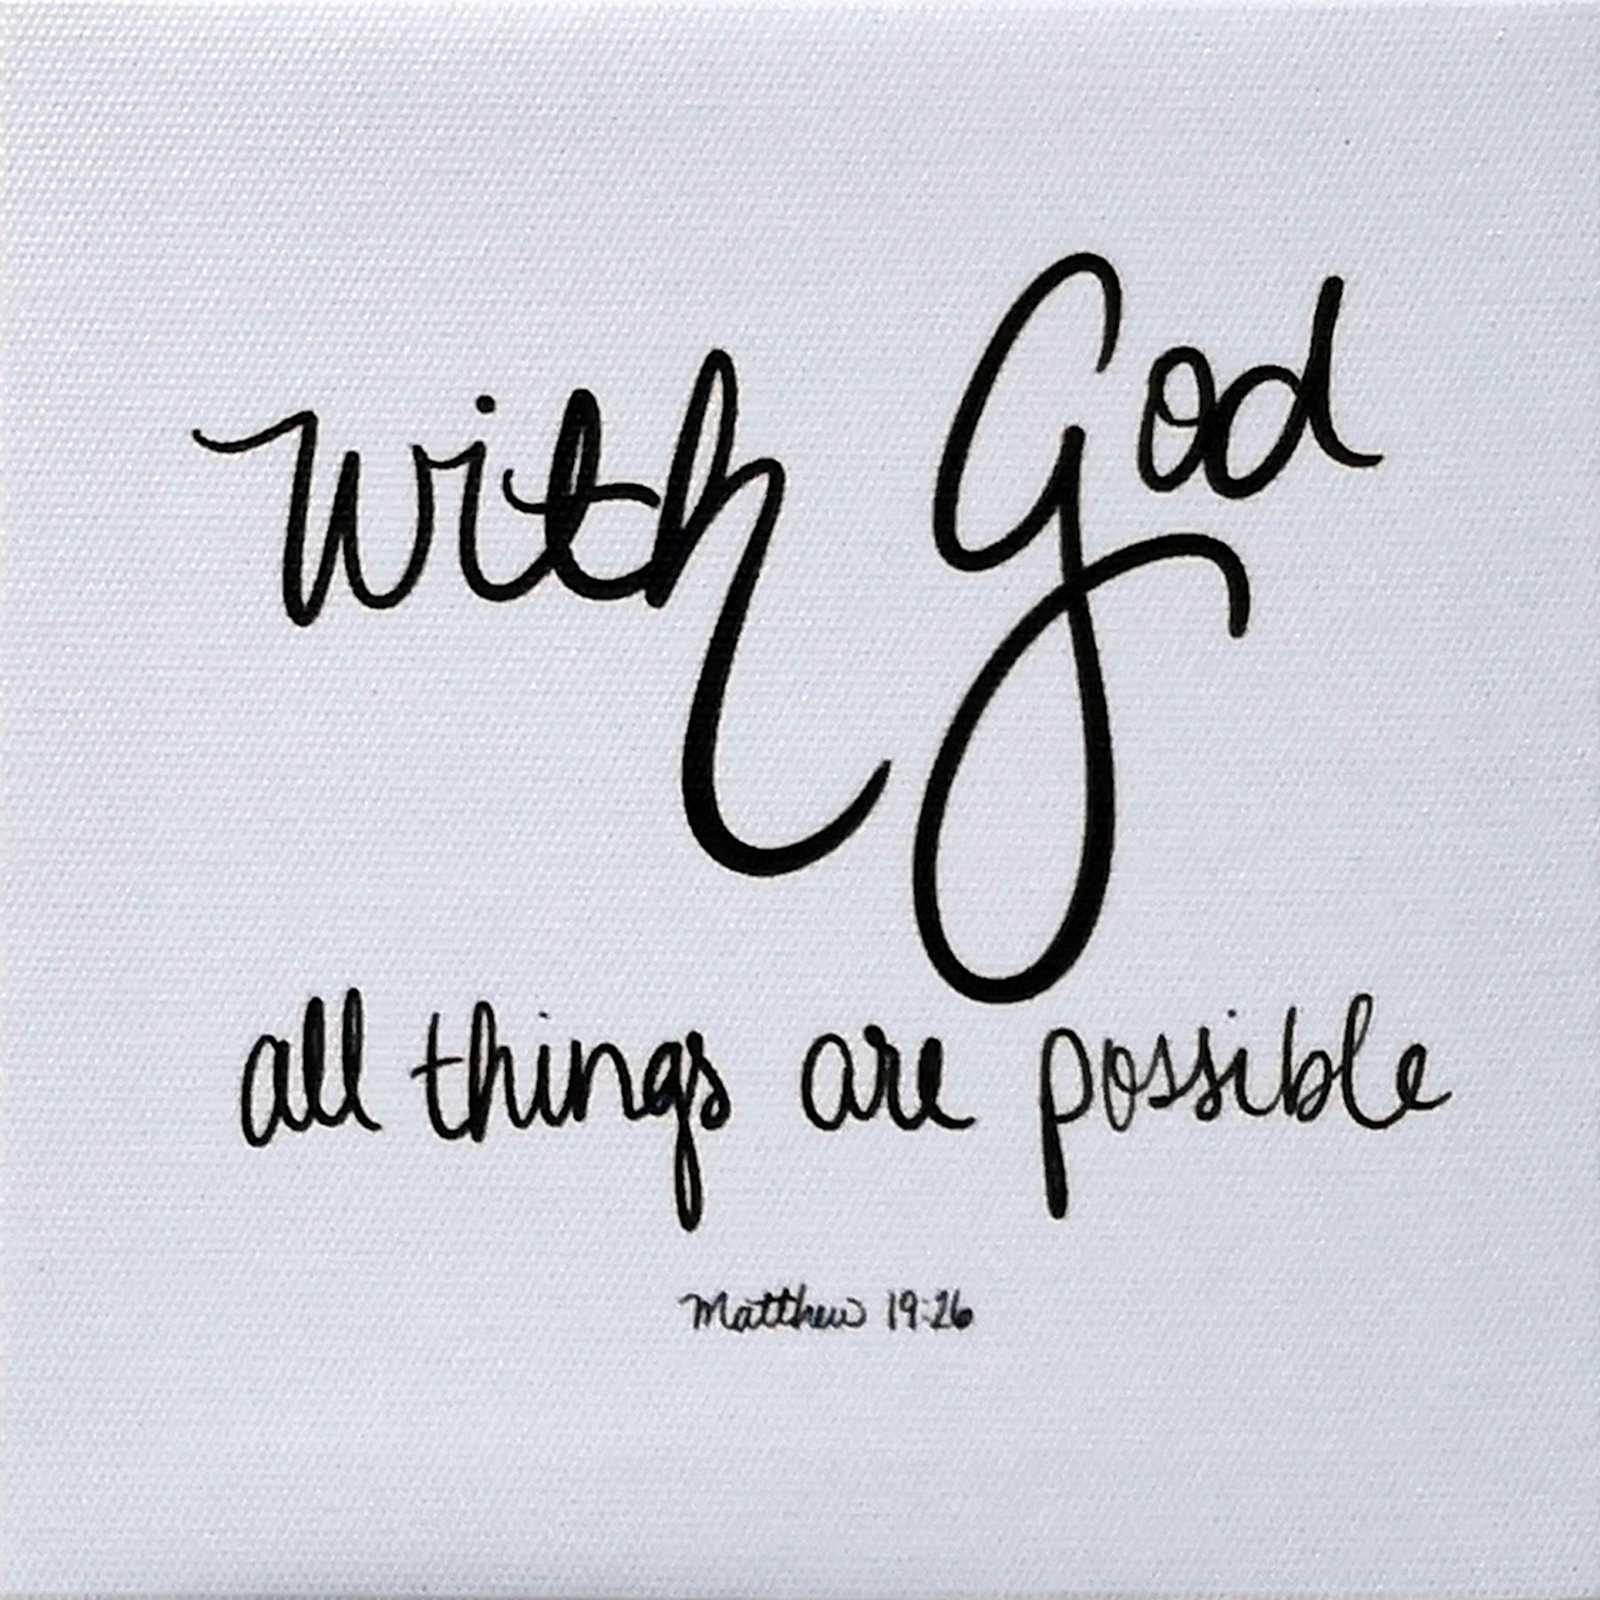 with God
all things are possible
Matthew 19:26